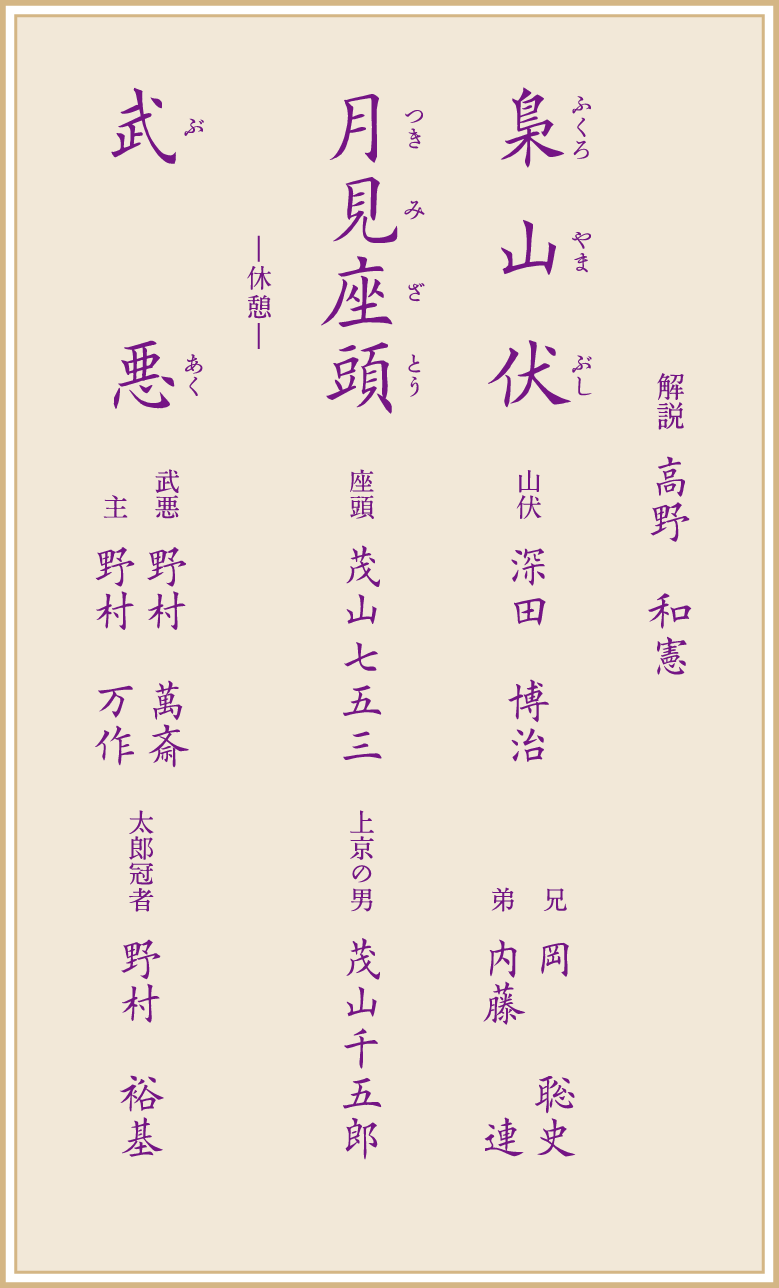 解説 高野 和憲
ふくろ やま ぶし
梟山伏
山伏 深田 博治
兄 岡 聡史
弟 内藤 連
つき み ざ とう
月見座頭
座頭 茂山七五三
上京の男 茂山千五郎
―休憩―
ぶ あく
武悪
武悪 野村 萬斎
主 野村 万作
太郎冠者 野村 裕基